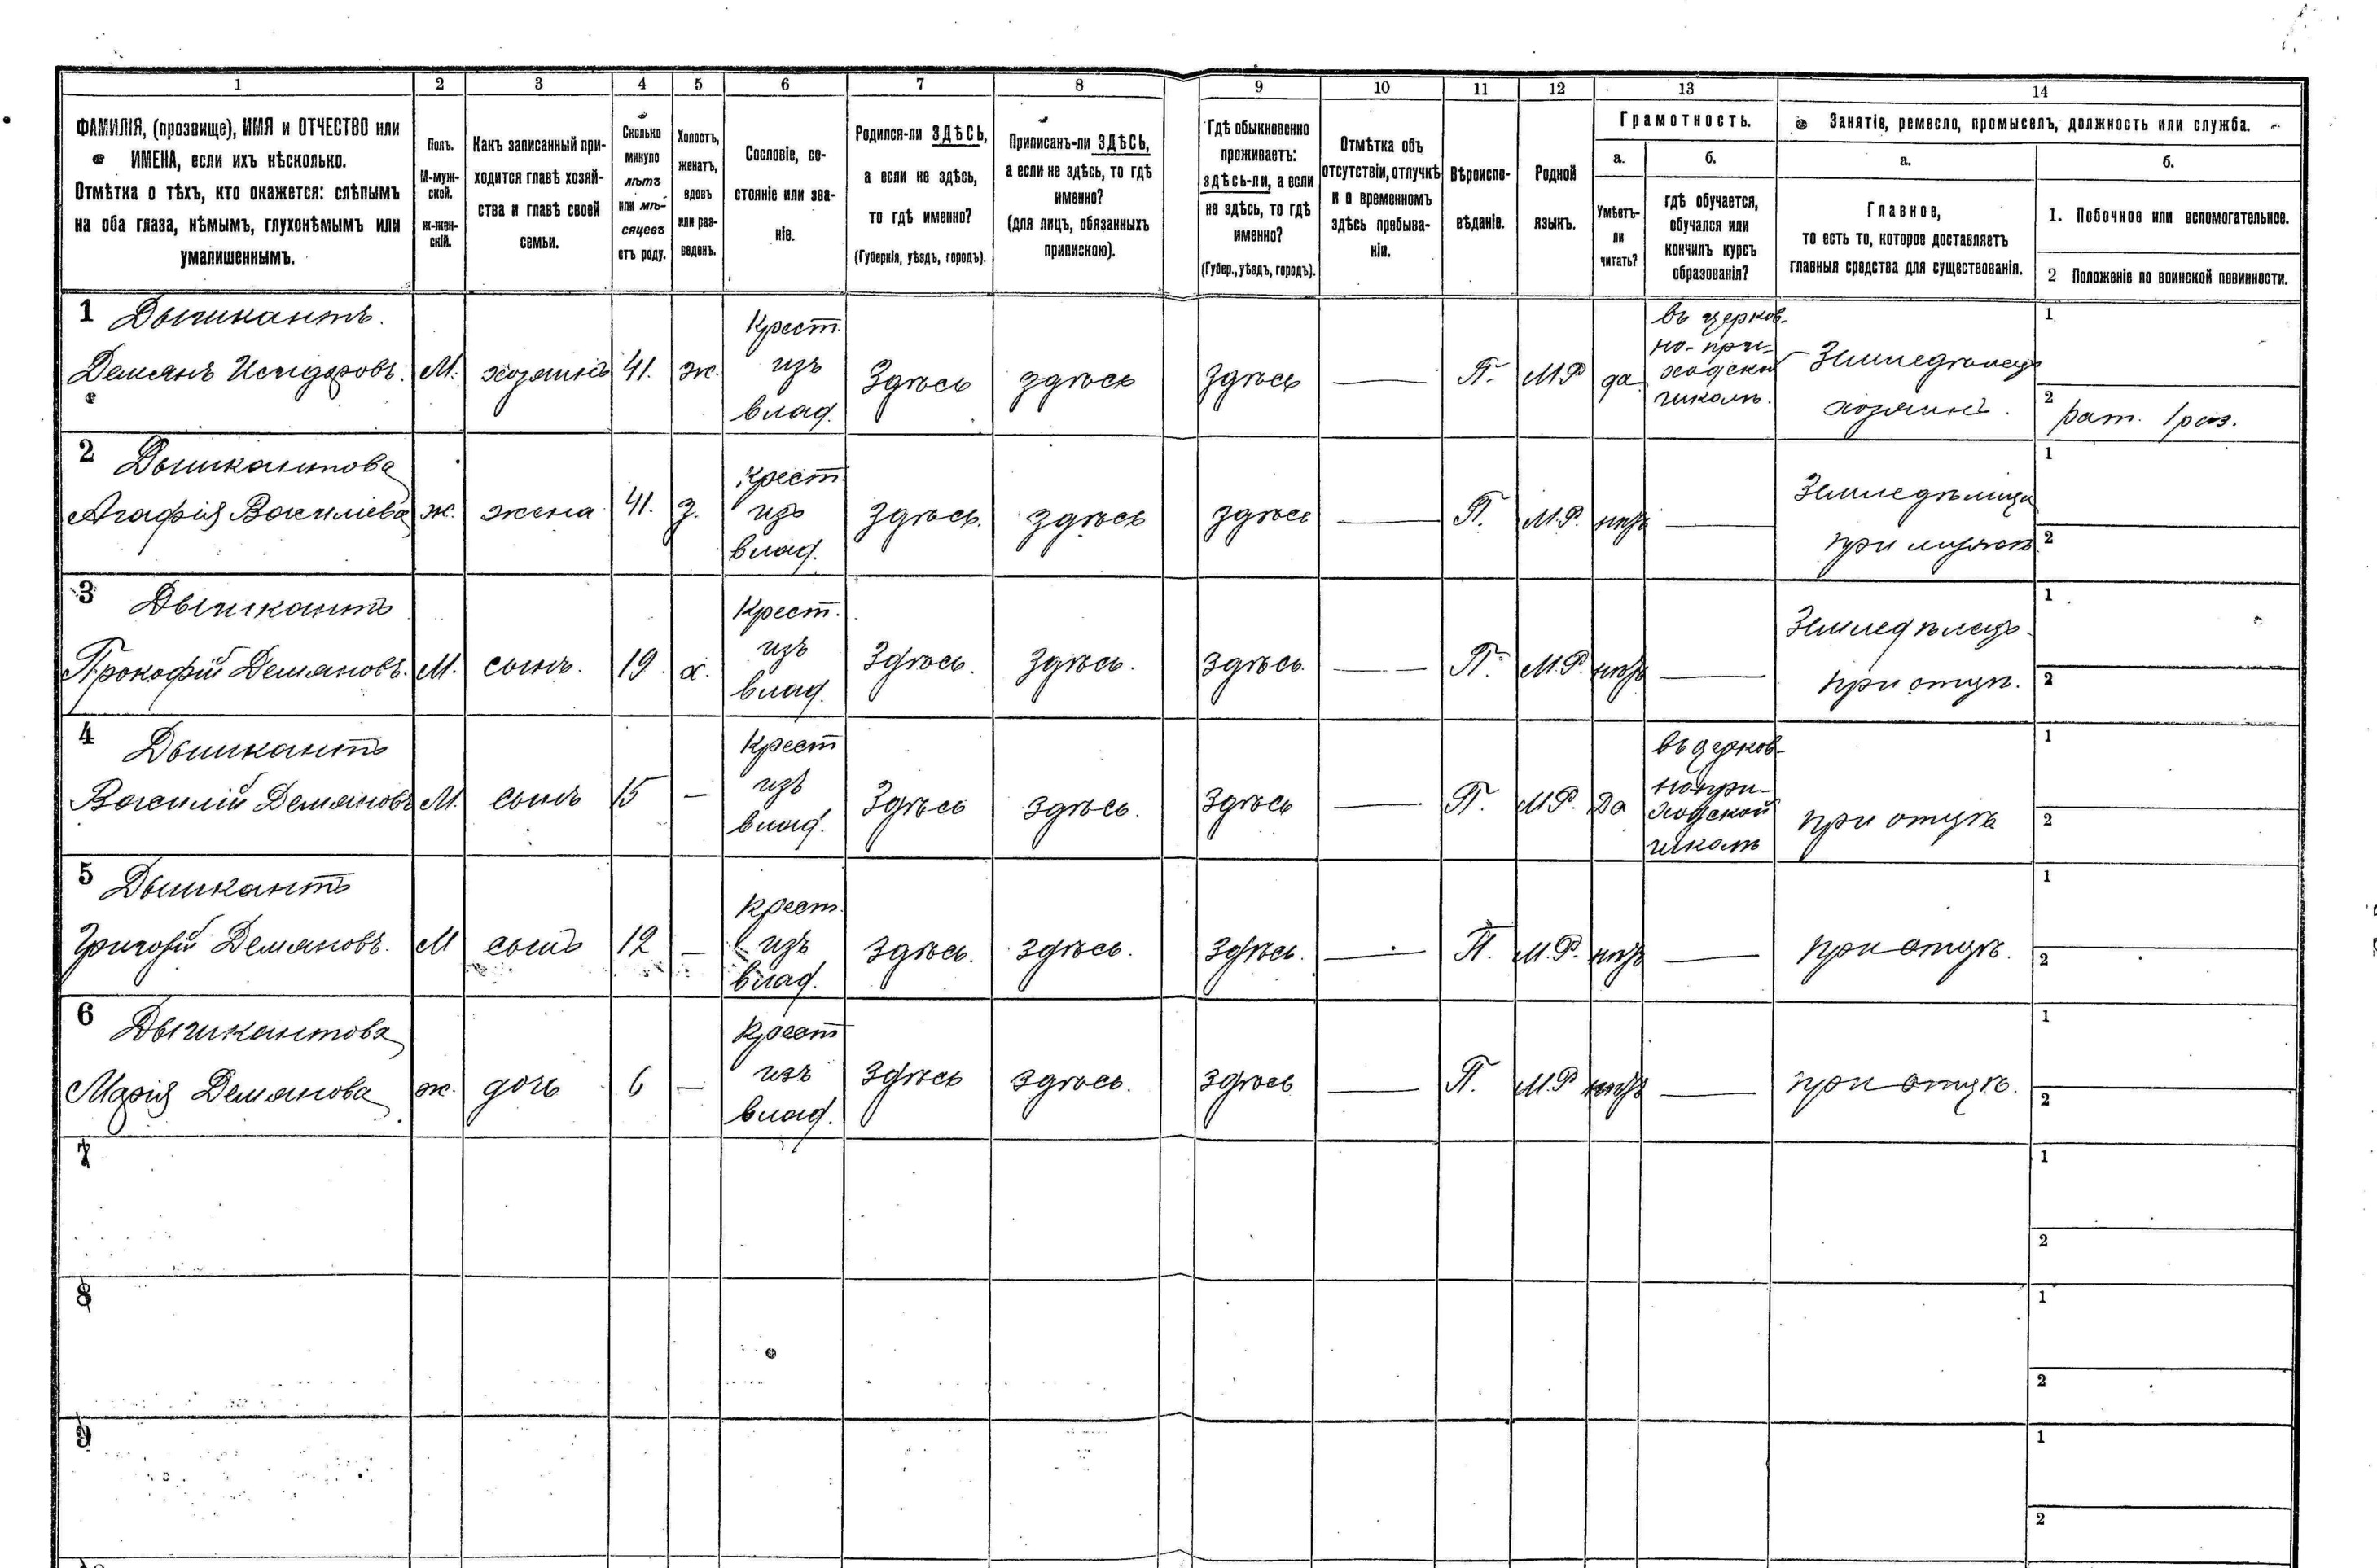 1 2 3 4 5 6 7 8 9 10 11 12 13 14
ФАМИЛІЯ, (прозвище), ИМЯ и ОТЧЕСТВО или
ИМЕНА, если ихъ нѣсколько.
Отмѣтка о тѣхъ, кто окажется: слѣпымъ
на оба глаза, нѣмымъ, глухонѣмымъ или
умалишеннымъ.
Полъ.
М-муж-
ской.
ж-жен-
скій.
Какъ записанный при-
ходится главѣ хозяй-
ства и главѣ своей
семьи.
Сколько
минуло
лѣтъ
или мѣ-
сяцевъ
отъ роду.
Холостъ,
женатъ,
вдовъ
или раз-
веденъ.
Сословіе, со-
стояніе или зва-
ніе.
Родился-ли ЗДѢСЬ,
а если не здѣсь,
то гдѣ именно?
(Губернія, уѣздъ, городъ).
Приписанъ-ли ЗДѢСЬ,
а если не здѣсь, то гдѣ
именно?
(для лицъ, обязанныхъ
припискою).
Гдѣ обыкновенно
проживаетъ:
здѣсь-ли, а если
не здѣсь, то гдѣ
именно?
(Губер., уѣздъ, городъ).
Отмѣтка объ
отсутствіи, отлучкѣ
и о временномъ
здѣсь пребыва-
ніи.
Вѣроиспо-
вѣданіе.
Родной
языкъ.
Грамотность.
а.
Умѣетъ-
ли
читать?
б.
гдѣ обучается,
обучался или
кончилъ курсъ
образованія?
Занятіе, ремесло, промыселъ, должность или служба.
а.
Главное,
то есть то, которое доставляетъ
главныя средства для существованія.
б.
1. Побочное или вспомогательное.
2 Положеніе по воинской повинности.
1 Дышкантъ.
Демянъ Исидоровъ.
М.
хозяинъ
41.
ж.
Крест.
изъ
влад.
Здѣсь
здѣсь
здѣсь
—
П.
М.Р
да
въ церков-
но-при-
ходской
школѣ.
Земледѣлецъ
хозяинъ.
1
2
рат. 1 раз.
2 Дышкантова
Агафія Василіева
ж.
жена
41.
з.
Крест
изъ
влад.
здѣсь.
здѣсь
здѣсь
—
П.
М.Р.
нѣтъ
—
Земледѣлица
при мужѣ.
1
2
3 Дышкантъ
Прокофій Демяновъ.
М.
сынъ.
19.
х.
Крест.
изъ
влад.
Здѣсь.
Здѣсь.
Здѣсь.
—
П.
М.Р.
нѣтъ
—
Земледѣлецъ
при отцѣ.
1
2
4 Дышкантъ
Василій Демяновъ
М.
сынъ
15
—
Крест
изъ
влад.
Здѣсь
здѣсь.
Здѣсь
—
П.
М.Р.
Да
въ церков-
нопри-
ходской
школѣ
при отцѣ
1
2
5 Дышкантъ
Григорій Демяновъ.
М
сынъ
12
—
Крест.
изъ
влад.
здѣсь.
здѣсь.
здѣсь.
—
П.
М.Р.
нѣтъ
—
при отцѣ.
1
2
6 Дышкантова
Марія Демянова
ж.
дочь
6
—
Крест
изъ
влад.
здѣсь
здѣсь.
здѣсь
—
П.
М.Р
нѣтъ
—
при отцѣ.
1
2
7
1
2
8
1
2
9
1
2